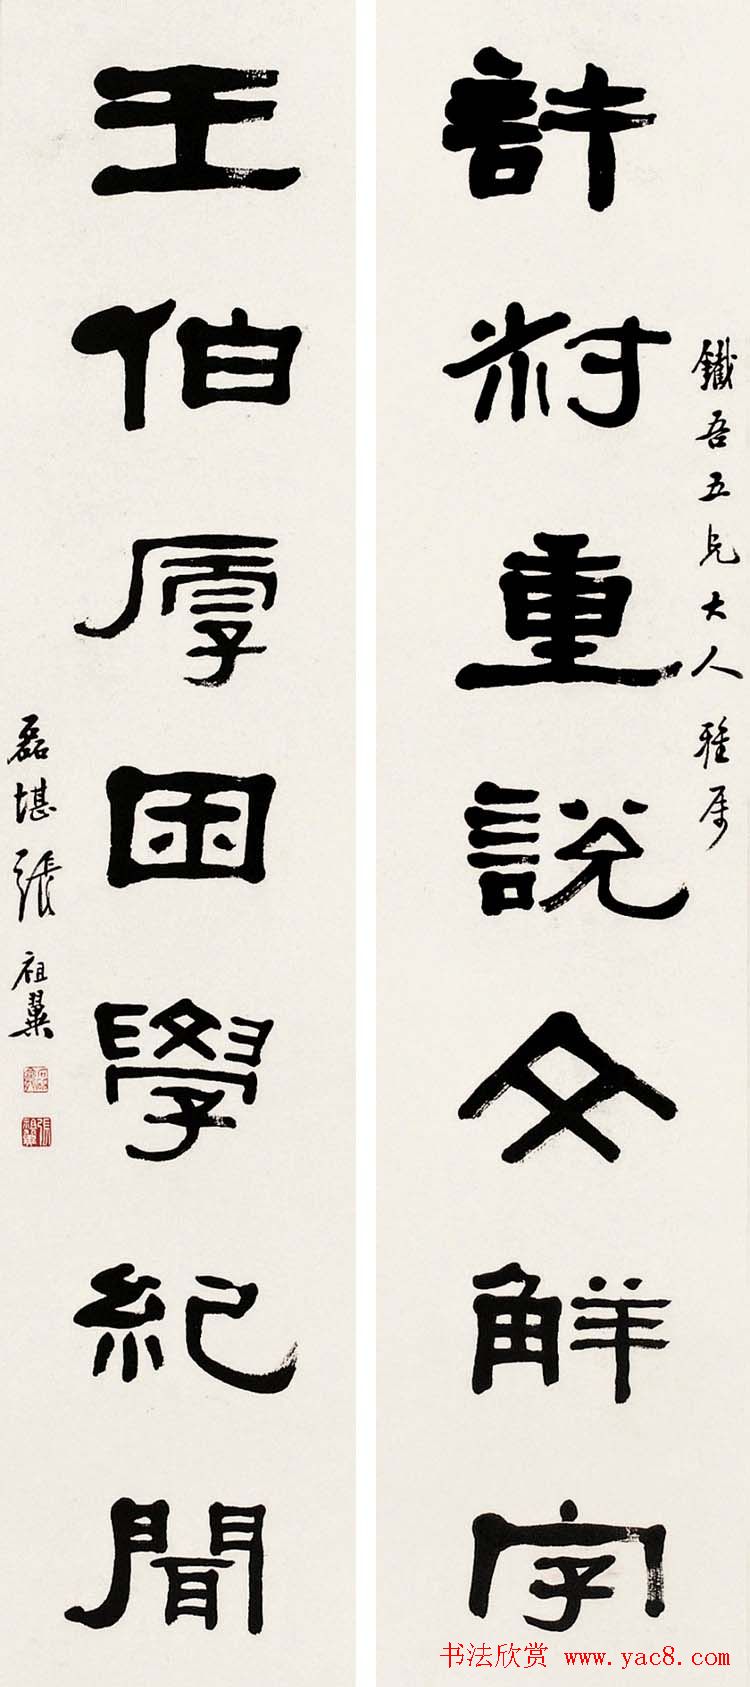 鐵吾五兄大人雅属
許叔重說文觧字
王伯厚困學紀聞
磊堪張祖翼
书法欣赏 www.yac8.com